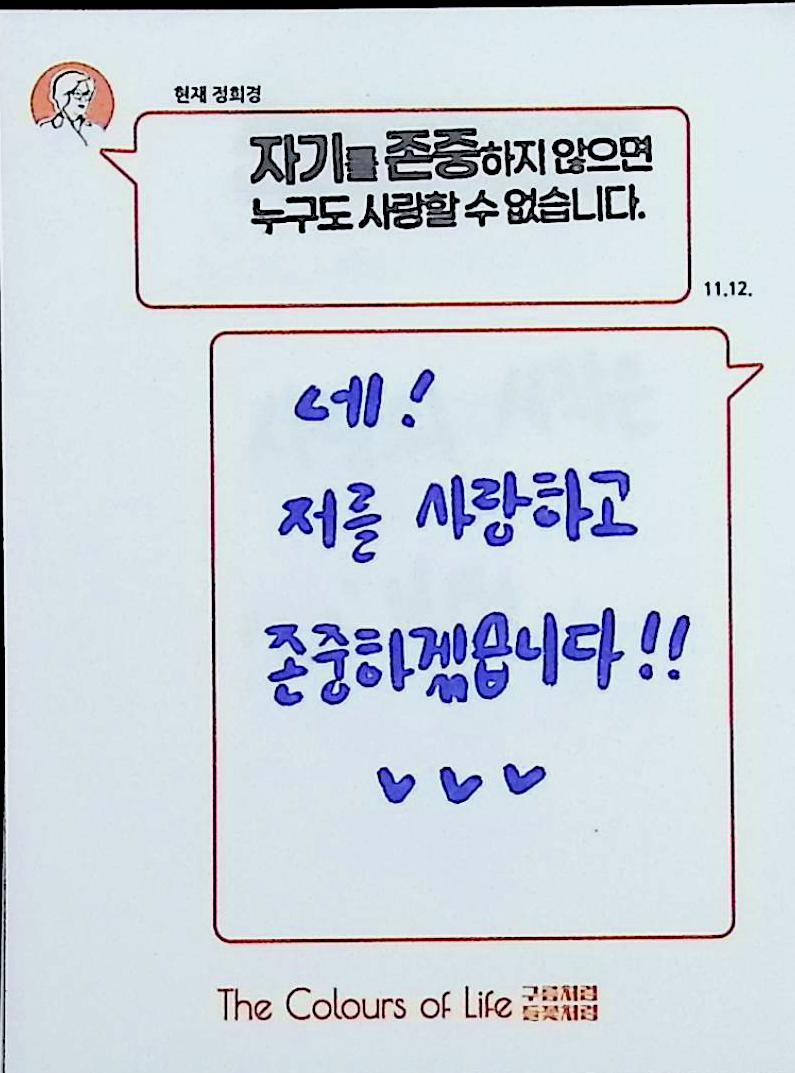 현재 정희경
자기를 존중하지 않으면
누구도 사랑할 수 없습니다.
11.12.
네!
저를 사랑하고
존중하겠습니다!!
The Colours of Life 구름처럼
들꽃처럼